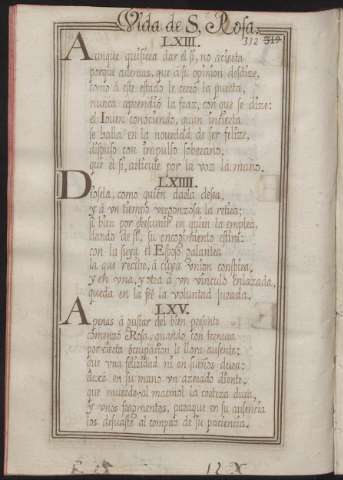 Vida de S. Rosa.
312 314
LXIII.
Aunque quisiera dar el si, no acierta
porque ademas, que a si opinion desdize,
como a este estado le cerró la puerta,
nunca aprendio la fraz, con que se dize:
el Iouen conociendo, quan incierta
se halla en la nouedad de ser felize,
dispuso con impulso soberano,
que el si, articule por la voz la mano.
LXIIII.
Diosela, como quien darla desea,
y a vn tiempo vergonzosa la retira;
si bien por descansar en quien la emplea,
dando de si, su encogimiento estira:
con la suya el Esposo galantea
la que recibe, á cuya vnion
y en vna, y otra a vn vinculo enlazada,
queda en la fee la voluntad
LXV.
Apenas á gustar del bien presente
comenzó Rosa, quando con terneza
por cierta ocupacion le llora ausente;
que vna felizidad ni en sueños dura:
dexó en su mano vn azerado diente,
que muerde al marmol la corteza dura,
y vnos fragmentos, paraque en su ausencia
los desuaste al compas de su paciencia.